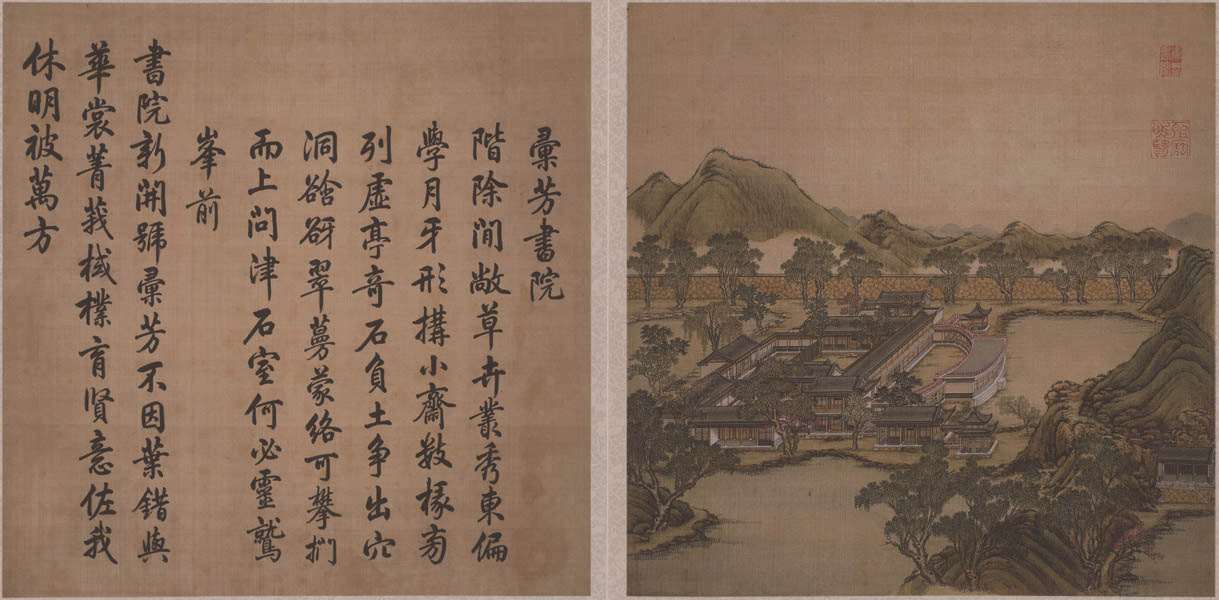 彙芳書院
階除閒敞草卉叢秀東偏
學月牙形構小齋數椽旁
列虛亭奇石負土爭出穴
洞谽谺翠蔓蒙絡可攀捫
而上問津石室何必靈鷲
峯前
書院新開號彙芳不因葉錯與
華裳菁莪棫樸育賢意佐我
休明被萬方